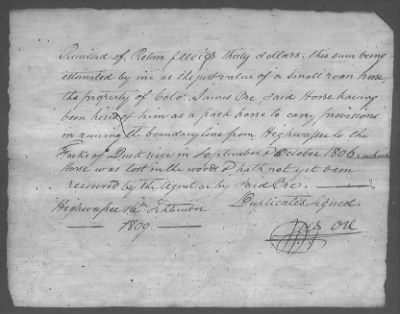 Received of Return J Meigs thirty dollars. this sum being
estimated by me as the just value of a small roan horse
the property of Colo. James Ore said Horse having
been hired of him as a pack horse to carry provisions
in running the boundary line from Highwassee to the
Forks of Duck river in September & October 1806, which
Horse was lost in the woods & hath not yet been
received by the Agent or by said Ore.
Highwassee 16th September Duplicates signed
1809 Jas Ore